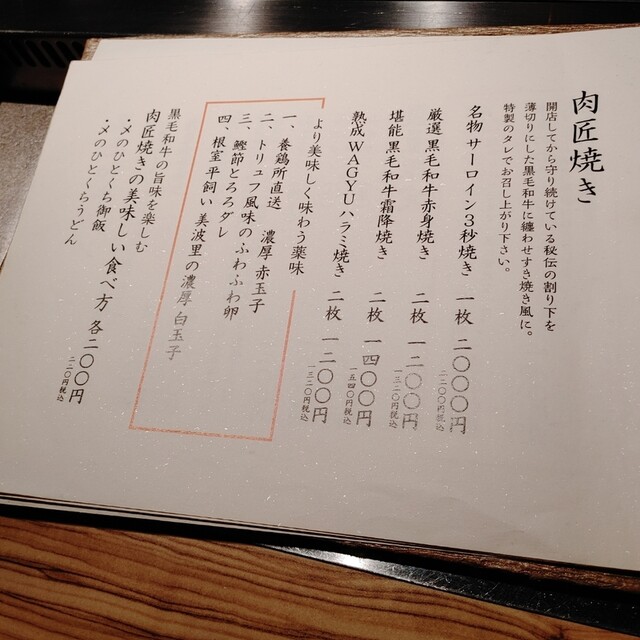 肉匠焼き
開店してから守り続けている秘伝の割り下を
薄切りにした黒毛和牛に纏わせすき焼き風に。
特製のタレでお召し上がり下さい。
名物 サーロイン3秒焼き 一枚 二〇〇〇円
二二〇〇円税込
厳選 黒毛和牛赤身焼き 二枚 一二〇〇円
一三二〇円税込
堪能 黒毛和牛霜降焼き 二枚 一四〇〇円
一五四〇円税込
熟成 WAGYUハラミ焼き 二枚 一二〇〇円
一三二〇円税込
より美味しく味わう薬味
一、養鶏所直送 濃厚 赤玉子
二、トリュフ風味のふわふわ卵
三、鰹節とろろダレ
四、根室 平飼い 美波里の濃厚 白玉子
黒毛和牛の旨味を楽しむ
肉匠焼きの美味しい食べ方 各二〇〇円
二二〇円税込
・〆のひとくち御飯
・〆のひとくちうどん